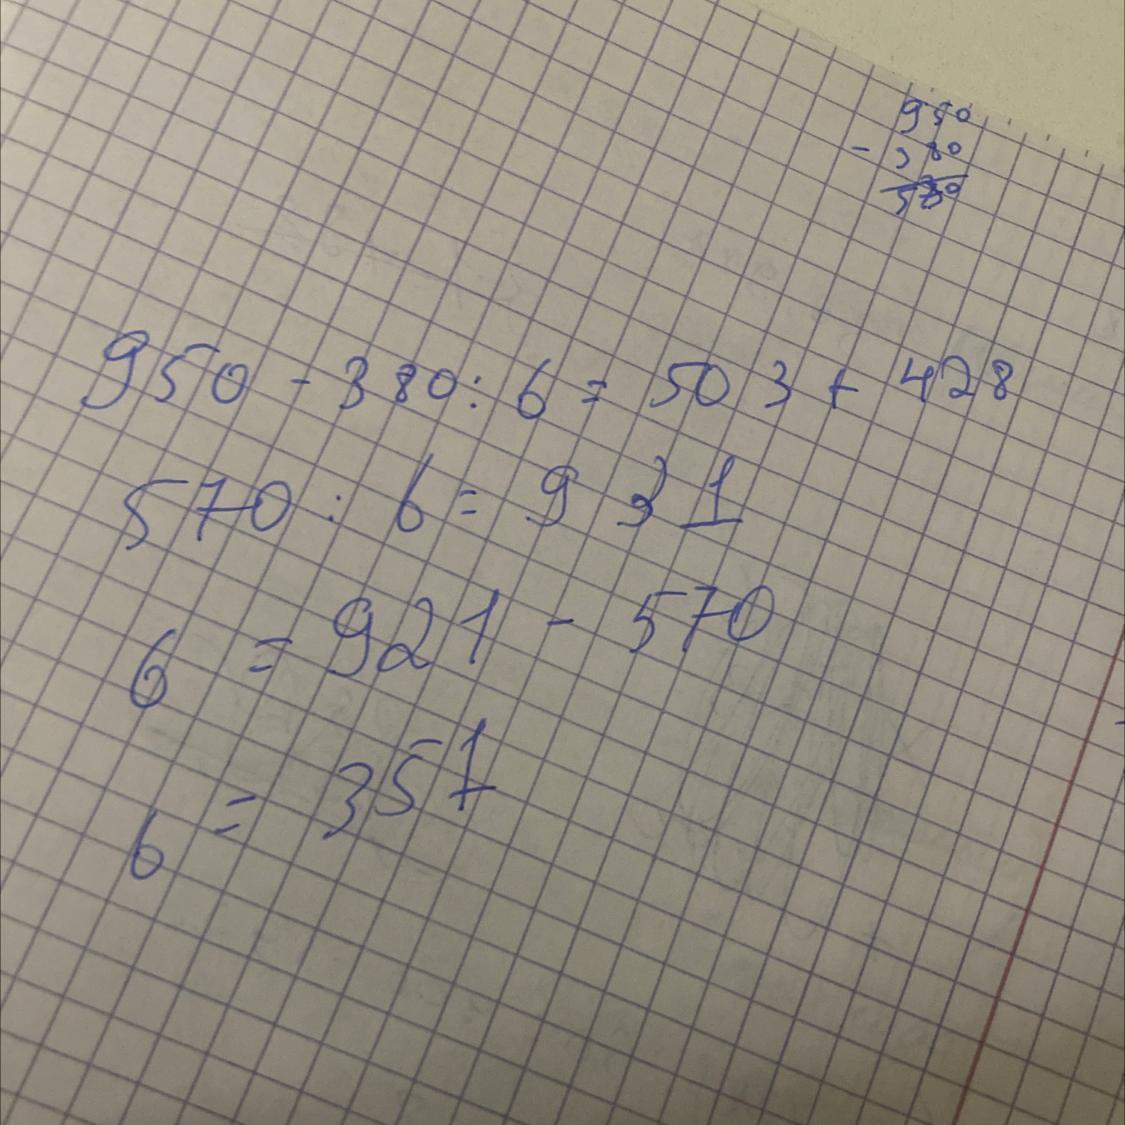 950
- 380
570
950 - 380 : 6 = 503 + 428
570 : 6 = 931
6 = 921 - 570
6 = 351